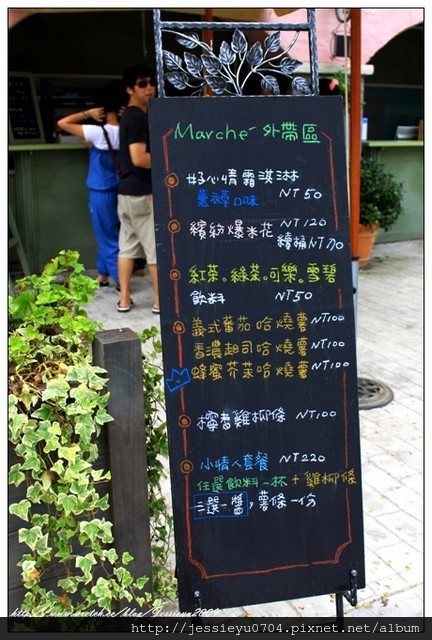 Marché 外帶區
好心情霜淇淋
薰衣草口味 NT50
繽紛爆米花 NT120
續桶NT70
紅茶。綠茶。可樂。雪碧
飲料 NT50
義式蕃茄哈燒薯 NT100
香濃起司哈燒薯 NT100
蜂蜜芥茉哈燒薯 NT100
檸香雞柳條 NT100
小情人套餐 NT220
任選飲料一杯+雞柳條
二選一醬,薯條一份
http://jessieyu0704.pixnet.net/album